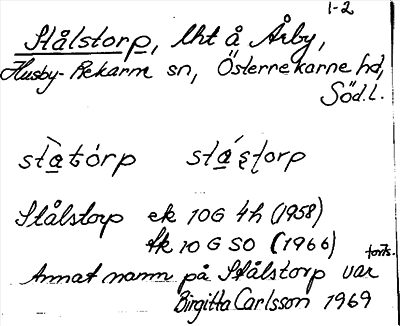 1-2
Stålstorp, lht å Årby,
Husby-Rekarne sn, Österrekarne hd,
Söd.l.
Stålstorp ek 10G 4h (1958)
fk 10 G SO (1966)
forts.
Annat namn på Stålstorp var
Birgitta Carlsson 1969